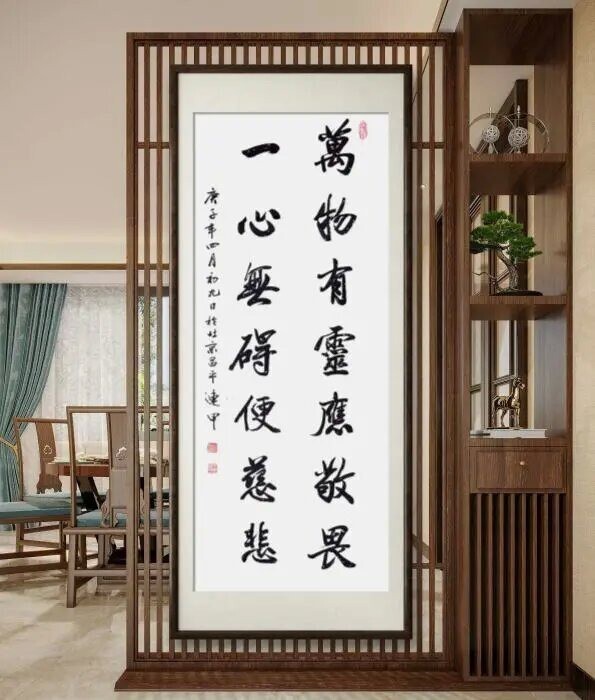 萬物有靈應敬畏
一心無碍便慈悲
庚子年四月初九日於北京昌平 連甲